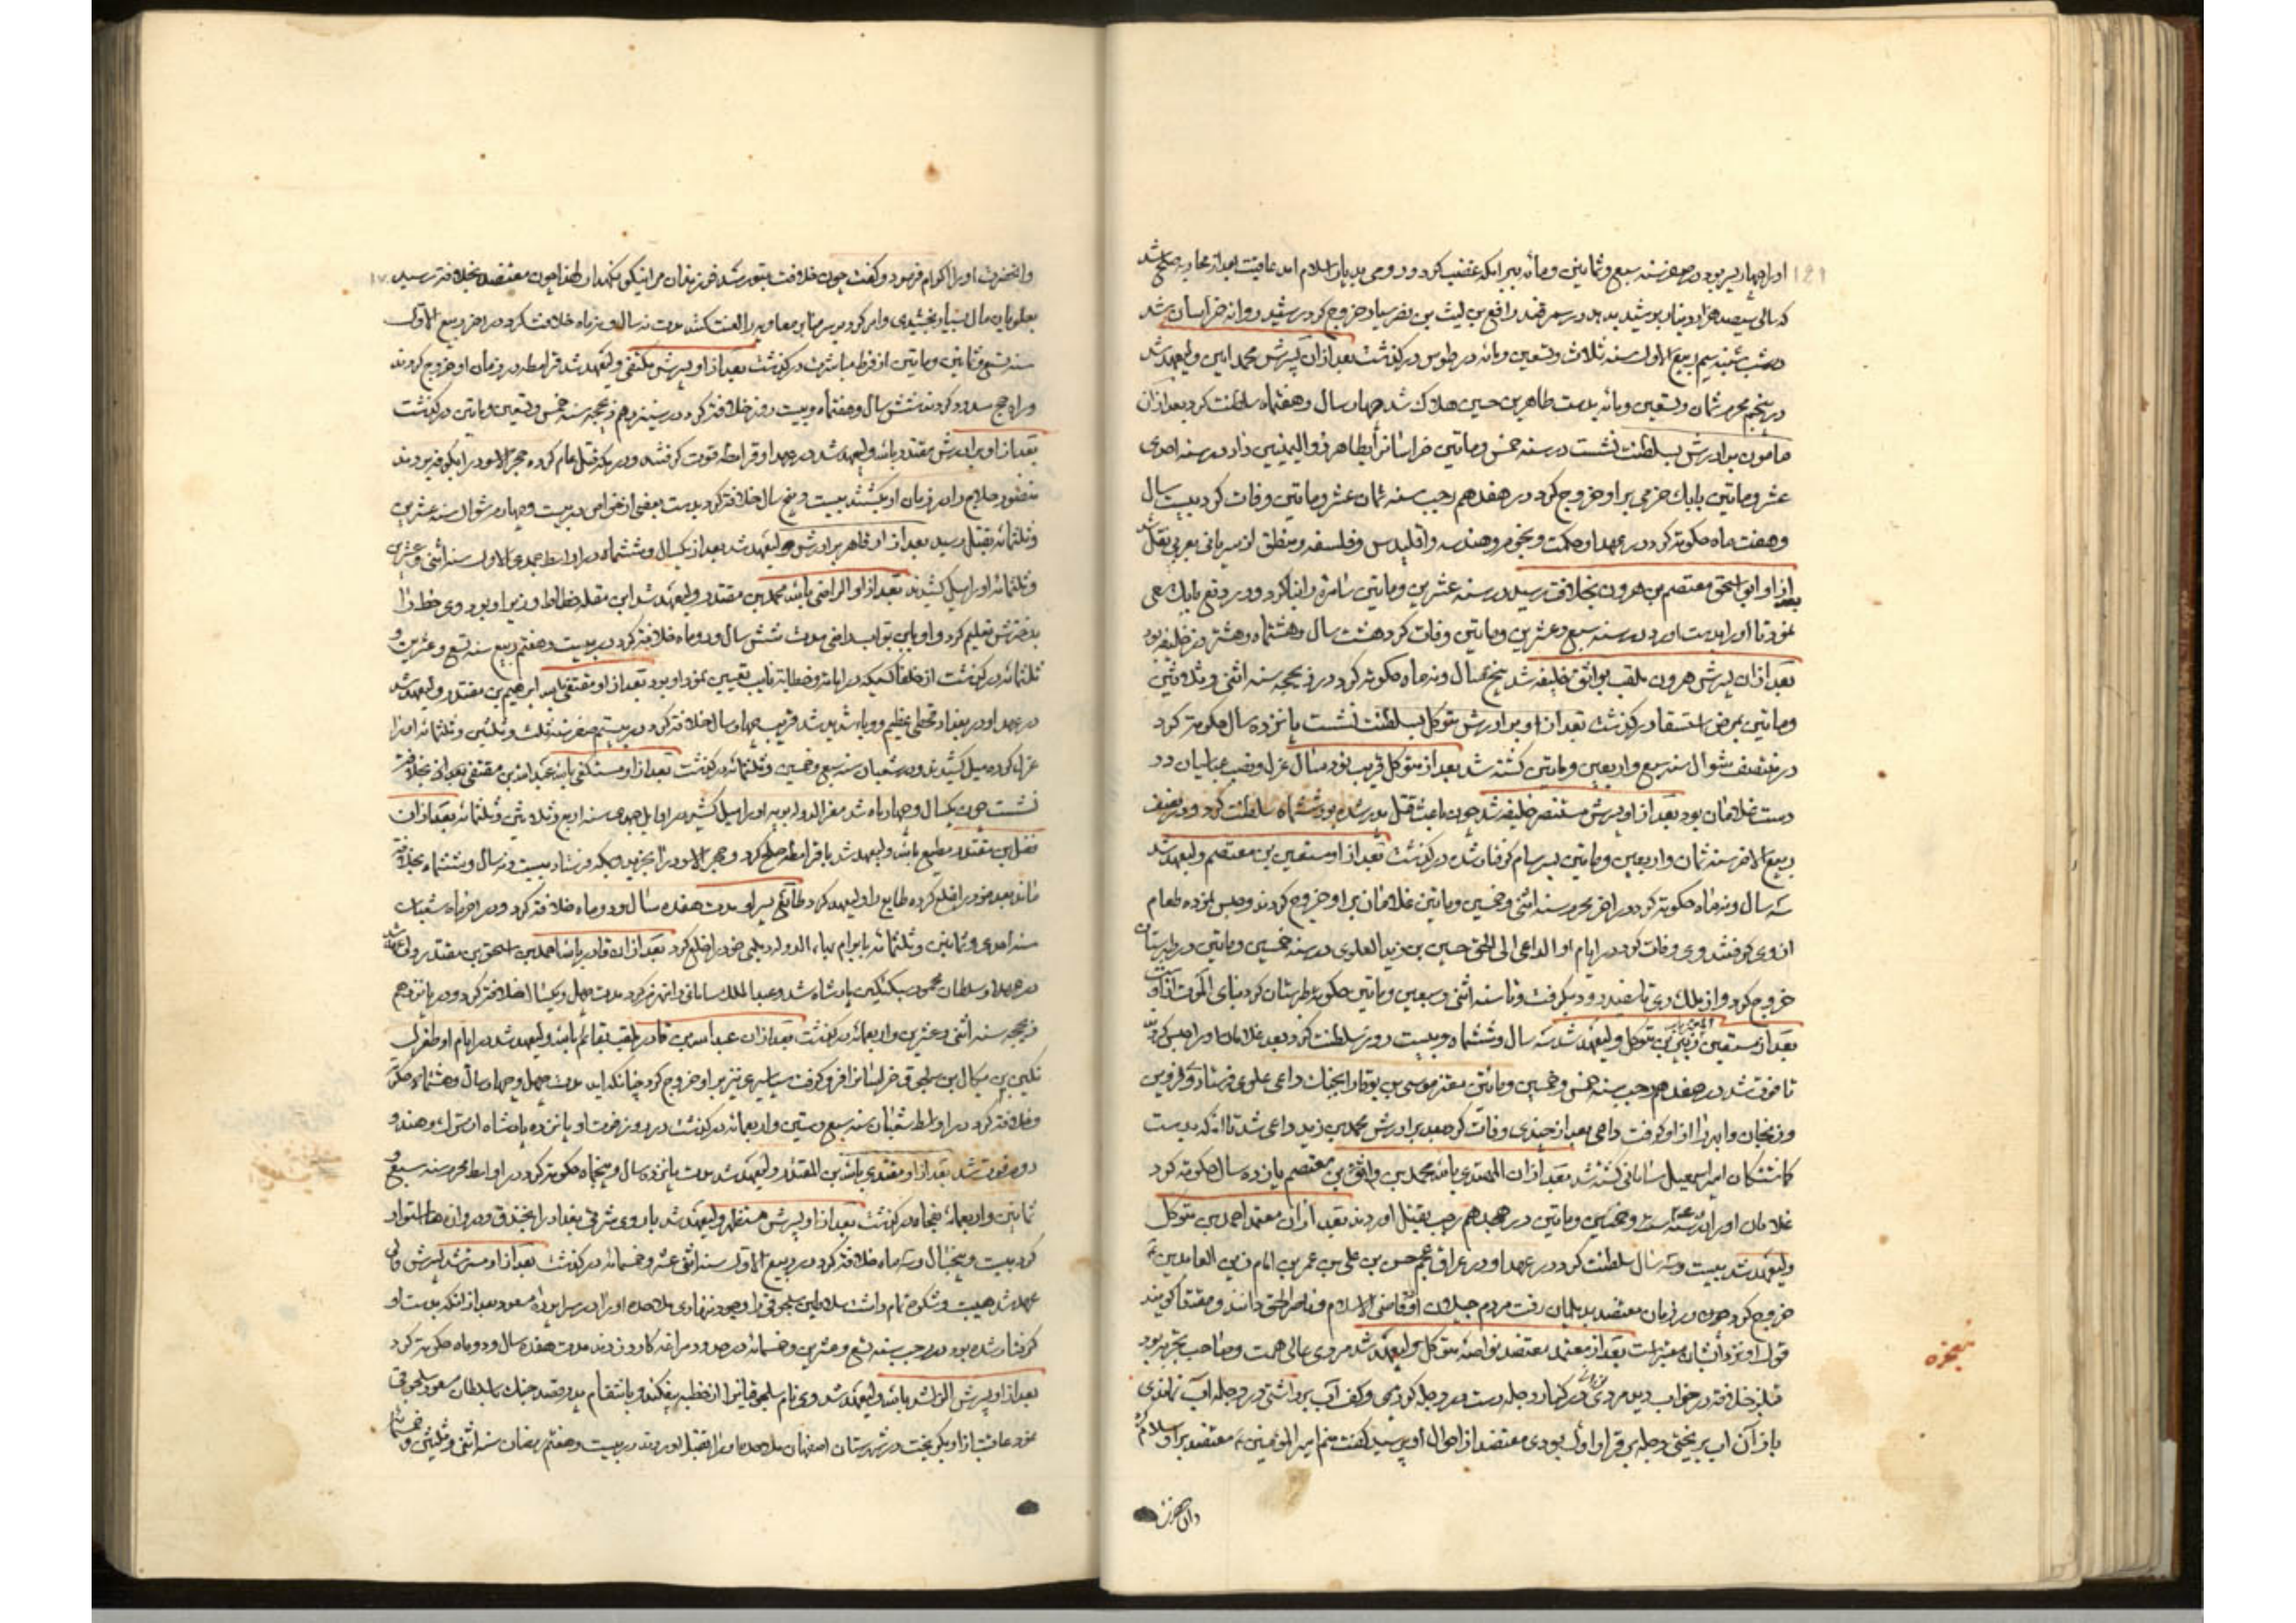 که سالی سیصد هزار دینار بوشید بدهد در سمرقند رافع بن لیث بن نصر سیار خروج کرد رشید روانه خراسان شد
در شب شنبه سیم ربیع الاول سنه ثلاث و تسعین و مائه در طوس در گذشت بعد از آن پسرش محمد امین ولیعهد شد
در پنجم محرم ثمان و تسعین و مائه بدست طاهر بن حسین هلاک شد چهار سال و هفتماه سلطنت کرد بعد از آن
مامون برادرش بسلطنت نشست در سنه خمس و ماتین خراسانرا بطاهر ذوالیمینین داد در سنه احدی
عشر و ماتین بابک خرمی براو خروج کرد در هفدهم رجب سنه ثمان عشر و ماتین وفات کرد بیست سال
و هفت ماه حکومة کرد در عهد او حکمت و نجوم و هندسه و اقلیدس و فلسفه و منطق از سریانی بعربی نقل شد
بعد از او ابو اسحق معتصم بن هرون بخلافت رسید در سنه عشرین و ماتین سامره را بنا کرد و در دفع بابک سعی
نمود تا او را بدست اورد در سنه سبع و عشرین و ماتین وفات کرد هشت سال و هشتماه و هشت روز خلیفه بود
بعد از آن پسرش هرون ملقب بواثق خلیفه شد پنج سال و نه ماه حکومة کرد در ذیحجه سنه اثنی و ثلاثین
و ماتین بمرض استسقا در گذشت بعد از او برادرش متوکل بسلطنت نشست پانزده سال حکومة کرد
در منتصف شوال سنه سبع و اربعین و ماتین کشته شد بعد از متوکل قریب نود سال عزل و نصب عباسیان در
دست غلامان بود بعد از او پسرش منتصر خلیفه شد چون باعث قتل پدر شده بود ششماه سلطنت کرد و در نصف
ربیع الاخر سنه ثمان و اربعین و ماتین بسرسام گرفتار شده در گذشت بعد از او مستعین بن معتصم ولیعهد شد
سه سال و نه ماه حکومة کرد در اخر محرم سنه اثنی و خمسین و ماتین غلامان براو خروج کردند و حبس نموده طعام
از وی گرفتند و وی وفات کرد در ایام او الداعی الی الحق حسین بن زید العلوی در سنه خمسین و ماتین در طبرستان
خروج کرد و از ملک ری تا سفیدرود بگرفت و تا سنه اثنی و سبعین و ماتین حکومة طبرستان کرد
بعد از مستعین بن متوکل ولیعهد شد سه سال و ششماه و بیست روز سلطنت کرد بعد غلامان او را حبس کردند
تا فوت شد در هفدهم رجب سنه خمس و خمسین و ماتین معتز موسی بن بوقا را بجنگ داعی علوی فرستاد و قزوین
و زنجان و ابهر را از او گرفت داعی بعد از چندی وفات کرد بعد برادرش محمد بن زید داعی شد تا انکه بدست
گماشتگان امیر اسمعیل سامانی کشته شد بعد از ان المهتدی بالله محمد بن واثق بن معتصم یازده سال حکومة کرد
غلامان او را در سنه ست و خمسین و ماتین در هجدهم رجب بقتل اوردند بعد از ان معتمد احمد بن متوکل
ولیعهد شد بیست و سه سال سلطنت کرد در عهد او در عراق عجم حسن بن علی بن عمر بن امام زین العابدین
خروج کرد چون در زمان معتضد بدیلمان رفت مردم جیلان او قاضی الاسلام و ناصر الحق دانند و مقتدا گویند
قول او نزد ایشان معتبر است بعد از معتمد معتضد نواصه متوکل ولیعهد شد مردی عالی همت و صاحب تجربه بود
قبل از خلافة در خواب دید مردی در کنار دجله دست در دجله کردی و کف آب برداشتی در دجله آب نماندی
باز آن آب بریختی دجله بر قرار اول بودی معتضد از احوال او پرسید گفت منم امیر المومنین معتضد براو سلام کرد
پنجزه
و انحضرت او را اکرام فرمود و گفت چون خلافت بتو رسد فرزندان مرا نیکو نگهدار لهذا چون معتضد بخلافة رسید
بعلویان مال بسیار بخشیدی و امر کرد بر سر منابر معاویه را لعنت کنند مدت نه سال و نه ماه خلافت کرد در اخر ربیع الاول
سنه تسع و ثمانین و ماتین از فرط مباشرت در گذشت بعد از او پسرش مکتفی ولیعهد شد قرامطه در زمان او خروج کردند
و راه حج مسدود کردند شش سال و هفتماه و بیست روز خلافة کرد در سیزدهم ذیحجه سنه خمس و تسعین و ماتین در گذشت
بعد از او برادرش مقتدر بالله ولیعهد شد در عهد او قرامطه قوت گرفتند و در مکه قتل عام کرده حجر الاسود را بکوفه بردند
منصور حلاج را در زمان او بکشتند بیست و پنج سال خلافة کرد بدست بعضی از خواص در بیست و چهارم شوال سنه عشرین
و ثلثمائه بقتل رسید بعد از او قاهر برادرش ولیعهد شد بعد از یکسال و ششماه در اواسط جمدی الاول سنه اثنی و عشرین
و ثلثمائه او را میل کشیدند بعد از او الراضی بالله محمد بن مقتدر ولیعهد شد ابن مقله خطاط وزیر او بود و وی خط را
بدخترش تعلیم کرد و او بابن بواب راضی مدت شش سال و دو ماه خلافة کرد در بیست و هفتم ربیع سنه تسع و عشرین و
ثلثمائه در گذشت از خلفا کسیکه در امامة و خطابة نایب تعیین نمود او بود بعد از او متقی بالله ابراهیم بن مقتدر ولیعهد شد
در عهد او در بغداد قحطی عظیم و وباء شدید شد قریب چهار سال خلافة کرد در بیستم صفر سنه ثلث و ثلثین و ثلثمائه او را
عزل کرده میل کشیدند و در شعبان سنه سبع و خمسین و ثلثمائه در گذشت بعد از او مستکفی بالله عبد الله بن مقتفی بعد از او بخلافة
نشست چون یکسال و چهار ماه شد معز الدوله بویه او را میل کشید در اوایل جمدی سنه اربع و ثلاثین و ثلثمائه بعد از ان
فضل بن مقتدر مطیع بالله ولیعهد شد با قرامطه صلح کرد و حجر الاسود را بخرید و بمکه فرستاد بیست و نه سال و ششماه بخلافة
ماند بعد خود را خلع کرده طایع را ولیعهد کرد طایع پسر او مدت هفده سال و دو ماه خلافة کرد و در اخر ماه شعبان
سنه احدی و ثمانین و ثلثمائه بابرام بهاء الدوله دیلمی خود را خلع کرد بعد از ان قادر بالله احمد بن اسحق بن مقتدر ولیعهد شد
در عهد او سلطان محمود سبکتکین پادشاه شد و عبد الملک سامانی را منهزم کرد مدت چهل و یکسال خلافة کرد و در پانزدهم
ذیحجه سنه اثنی و عشرین و اربعمائه در گذشت بعد از ان عبد الله بن قادر ملقب بقائم بالله ولیعهد شد در ایام او طغرل
تکین بن میکال بن سلجوق خراسانرا فرو گرفت بساسیری نیز براو خروج کرد چنانکه اید مدت چهل و چهار سال و هشتماه حکومة
و خلافة کرد در اواسط شعبان سنه سبع و ستین و اربعمائه در گذشت در روز فوت او پانزده پادشاه از ترک و هند و
روم فوت شد بعد از او مقتدی بالله بن المقتدر ولیعهد شد مدت پانزده سال و پنجماه حکومة کرد در اواسط محرم سنه سبع و
ثمانین و اربعمائه بفجاه در گذشت بعد از او پسرش مستظهر ولیعهد شد باروی شرقی بغداد را بخندق و دروازه ها استوار
کرد بیست و پنجسال و سه ماه خلافة کرد در ربیع الاول سنه اثنی عشر و خمسمائه در گذشت بعد از او مسترشد پسرش ولی
عهد شد هیبت و شکوه تمام داشت
گرفتار شده بود در رجب سنه تسع و عشرین و خمسمائه در حدود مراغه کارد زدند مدت هفده سال و دو ماه حکومة کرد
بعد از او پسرش الراشد بالله ولیعهد شد وی نام سلجوقیانرا از خطبه بیفکند و بانتقام پدر قصد جنک سلطان مسعود سلجوقی
نمود عاقبت از او بگریخت در شهرستان اصفهان ملاحده او را بقتل اوردند در بیست و هفتم رمضان سنه اثنی و ثلثین و خمسمائه